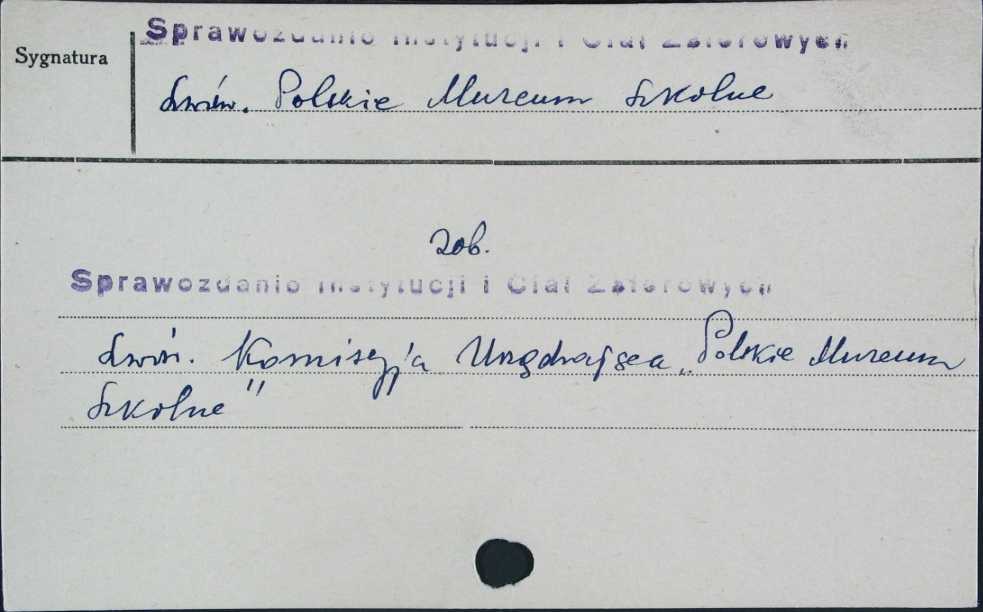 Sprawozdanie Instytucji i Ciał Zbiorowych
Sygnatura
Lwów. Polskie Muzeum Szkolne
zob.
Sprawozdanie Instytucji i Ciał Zbiorowych
Lwów. Komisyja Urządzająca „Polskie Muzeum
Szkolne"